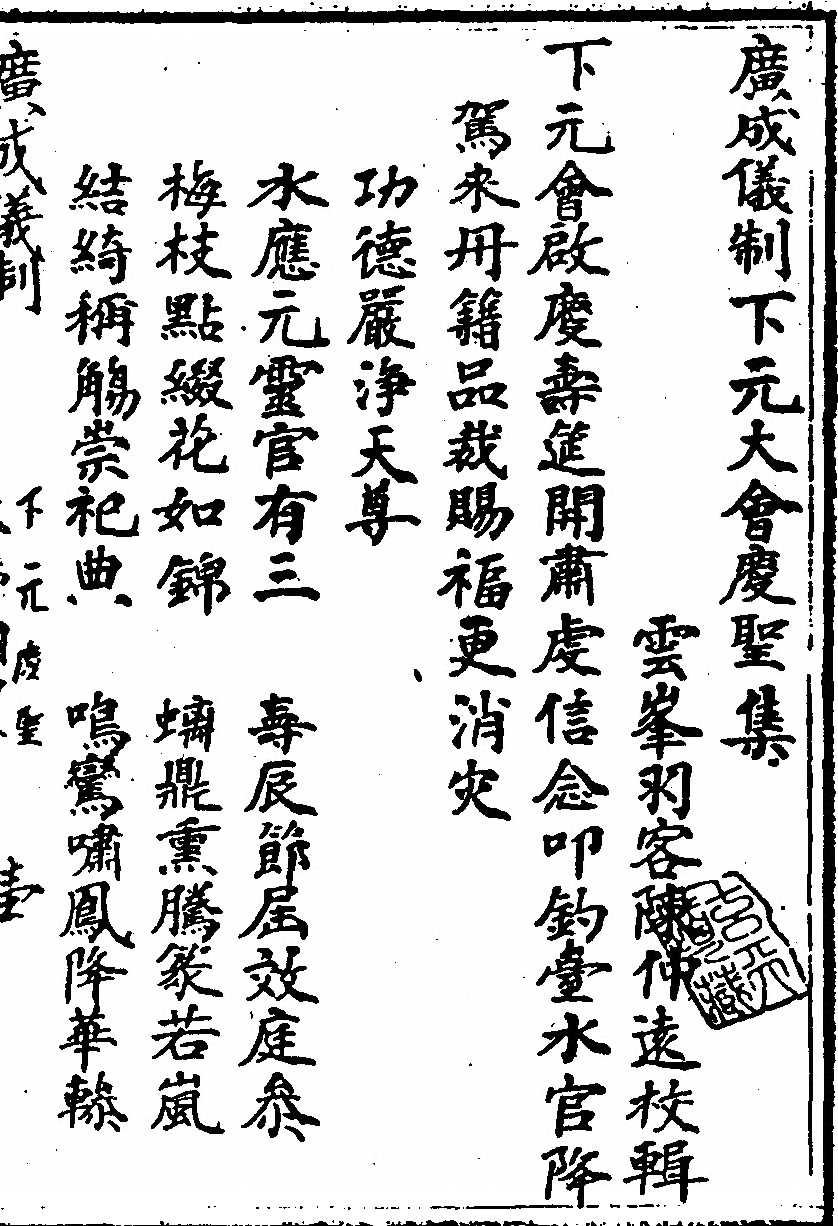 廣成儀制下元大會慶聖集
雲峯羽客陳仲遠校輯
下元會啟慶壽筵開肅虔信念叩鈞臺水官降
駕來册籍品裁賜福更消灾
功德嚴淨天尊
水應元靈官有三　壽辰節屆效庭叅
梅枝點綴花如錦　螭鼎熏騰篆若嵐
結綺稱觴崇祀典　鳴鸞嘯鳳降華轔
廣成儀制
下元慶聖
壹